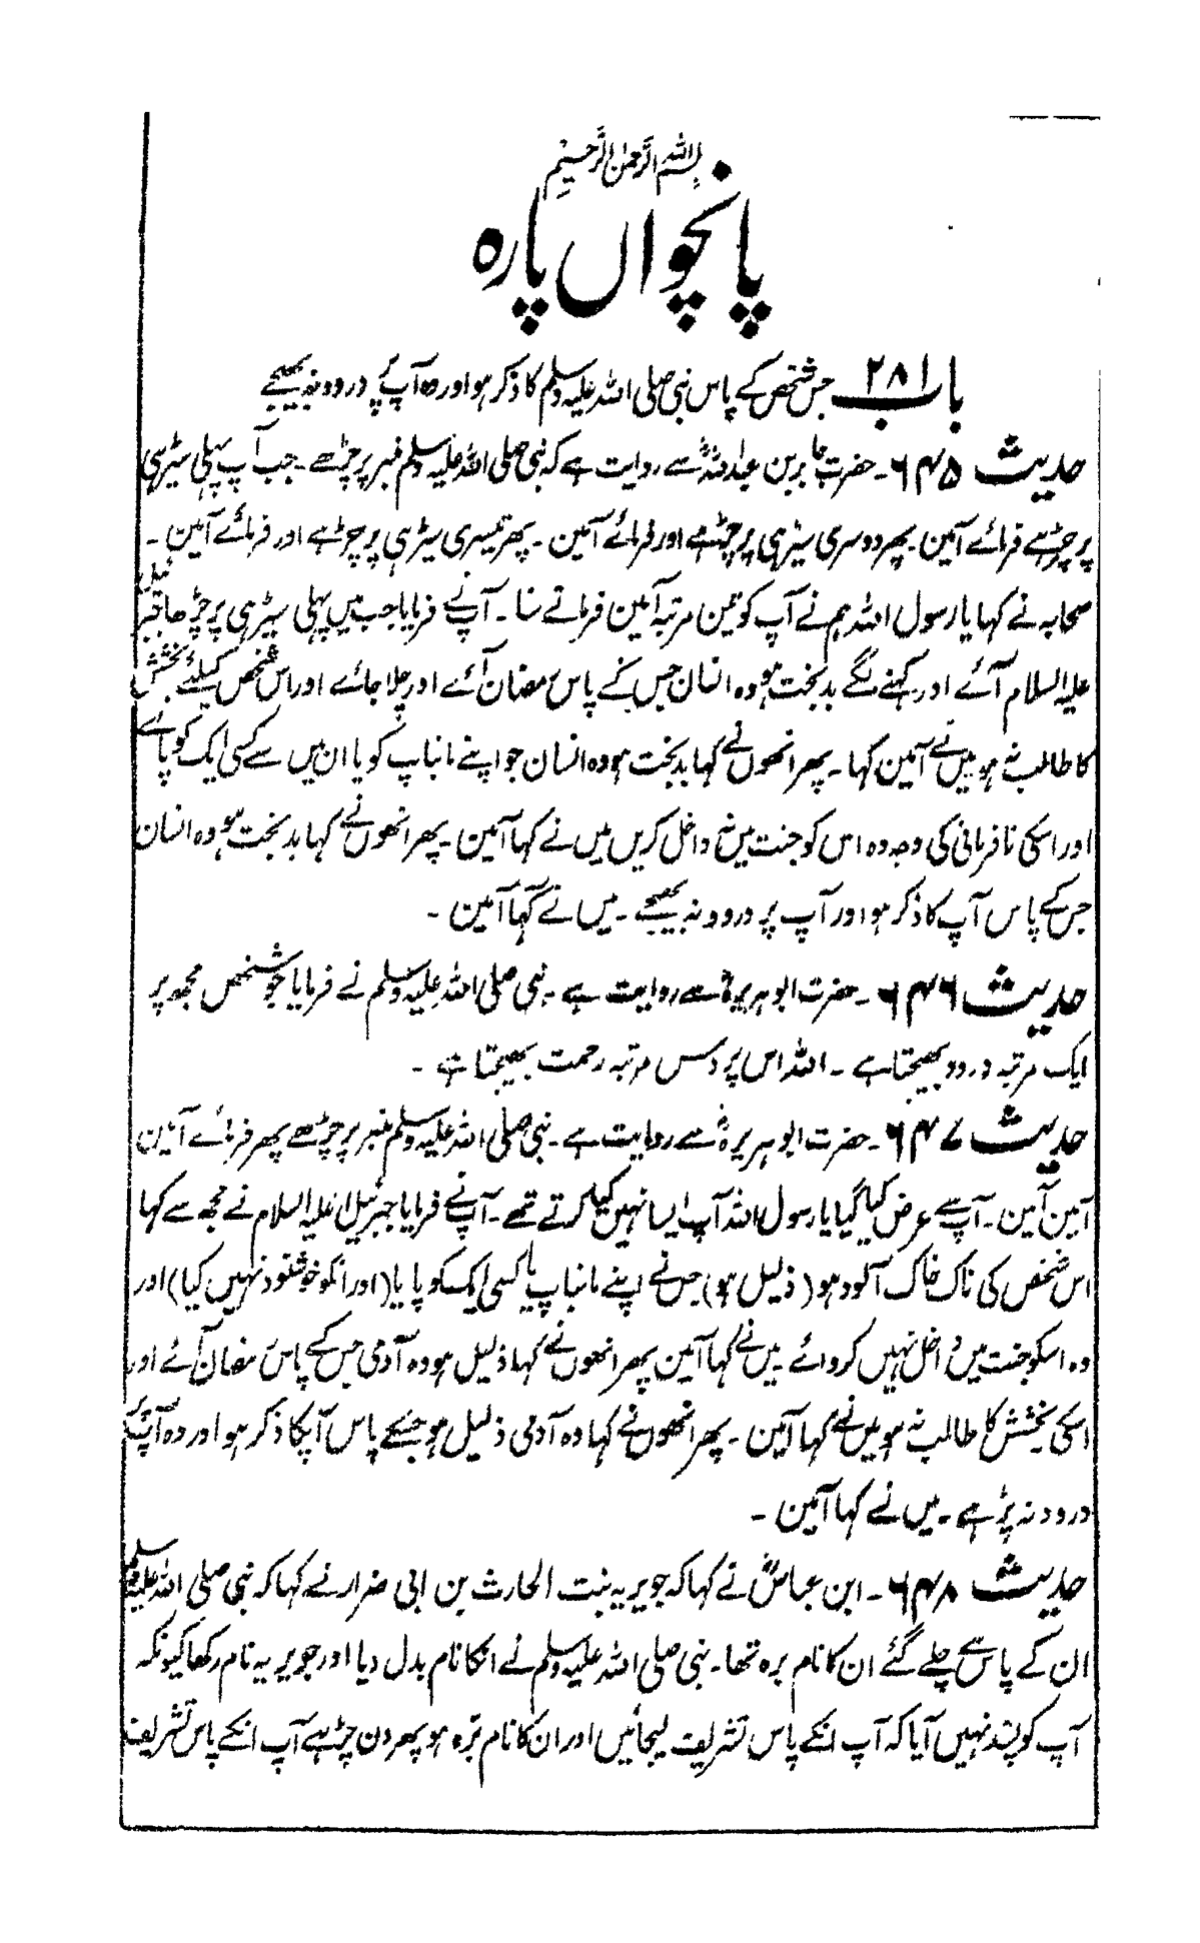 بسم اللہ الرحمٰن الرحیم
پانچواں پارہ
باب ۲۸۱ جس شخص کے پاس نبی صلی اللہ علیہ وسلم کا ذکر ہو اور وہ آپؐ پر درود نہ بھیجے
حدیث ۶۴۵ ۔ حضرت جابر بن عبداللہؓ سے روایت ہے کہ نبی صلی اللہ علیہ وسلم منبر پر چڑھے ۔ جب آپ پہلی سیڑہی
پر چڑہے فرمائے آمین ۔ پھر دوسری سیڑہی پر چڑہے اور فرمائے آمین ۔ پھر تیسری سیڑہی پر چڑہے اور فرمائے آمین ۔
صحابہ نے کہا یا رسول اللہ ہم نے آپ کو تین مرتبہ آمین فرماتے سنا ۔ آپ نے فرمایا جب میں پہلی سیڑہی پر چڑھا تو جبرئیل
علیہ السلام آئے اور کہنے لگے بد بخت ہو وہ انسان جس کے پاس رمضان آئے اور چلا جائے اور اس شخص کیلئے بخشش
کا طالب نہ ہو میں نے آمین کہا ۔ پھر انھوں نے کہا بدبخت ہو وہ انسان جو اپنے مانباپ کو یا ان میں سے کسی ایک کو پائے
اور اسکی نافرمانی کی وجہ وہ اس کو جنت میں نہ داخل کریں میں نے کہا آمین ۔ پھر انھوں نے کہا بد بخت ہو وہ انسان
جس کے پاس آپ کا ذکر ہو اور آپ پر درود نہ بھیجے ۔ میں نے کہا آمین ۔
حدیث ۶۴۶ ۔ حضرت ابوہریرہؓ سے روایت ہے ۔ نبی صلی اللہ علیہ وسلم نے فرمایا جو شخص مجھ پر
ایک مرتبہ درود بھیجتا ہے ۔ اللہ اس پر دس مرتبہ رحمت بھیجتا ہے ۔
حدیث ۶۴۷ ۔ حضرت ابوہریرہؓ سے روایت ہے ۔ نبی صلی اللہ علیہ وسلم منبر پر چڑھے پھر فرمائے آمین
آمین آمین ۔ آپ سے عرض کیا گیا یا رسول اللہ آپ ایسا نہیں کیا کرتے تھے ۔ آپ نے فرمایا جبرئیل علیہ السلام نے مجھ سے کہا
اس شخص کی ناک خاک آلود ہو (ذلیل ہو) جس نے اپنے مانباپ یا کسی ایک کو پایا (اور انکو خوشنود نہیں کیا) اور
وہ اسکو جنت میں داخل نہیں کروائے میں نے کہا آمین پھر انھوں نے کہا ذلیل ہو وہ آدمی جس کے پاس رمضان آئے اور
اسکی بخشش کا طالب نہ ہو میں نے کہا آمین ۔ پھر انھوں نے کہا وہ آدمی ذلیل ہو جسکے پاس آپکا ذکر ہو اور وہ آپؐ پر
درود نہ پڑہے ۔ میں نے کہا آمین ۔
حدیث ۶۴۸ ۔ ابن عباسؓ نے کہا کہ جویریہ بنت الحارث بن ابی ضرار نے کہا کہ نبی صلی اللہ علیہ وسلم
ان کے پاس سے چلے گئے ان کا نام برہ تھا ۔ نبی صلی اللہ علیہ وسلم نے انکا نام بدل دیا اور جویریہ نام رکھا کیونکہ
آپ کو پسند نہیں آیا کہ آپ انکے پاس تشریف لیجائیں اور ان کا نام برّہ ہو پھر دن چڑہے آپ انکے پاس تشریف